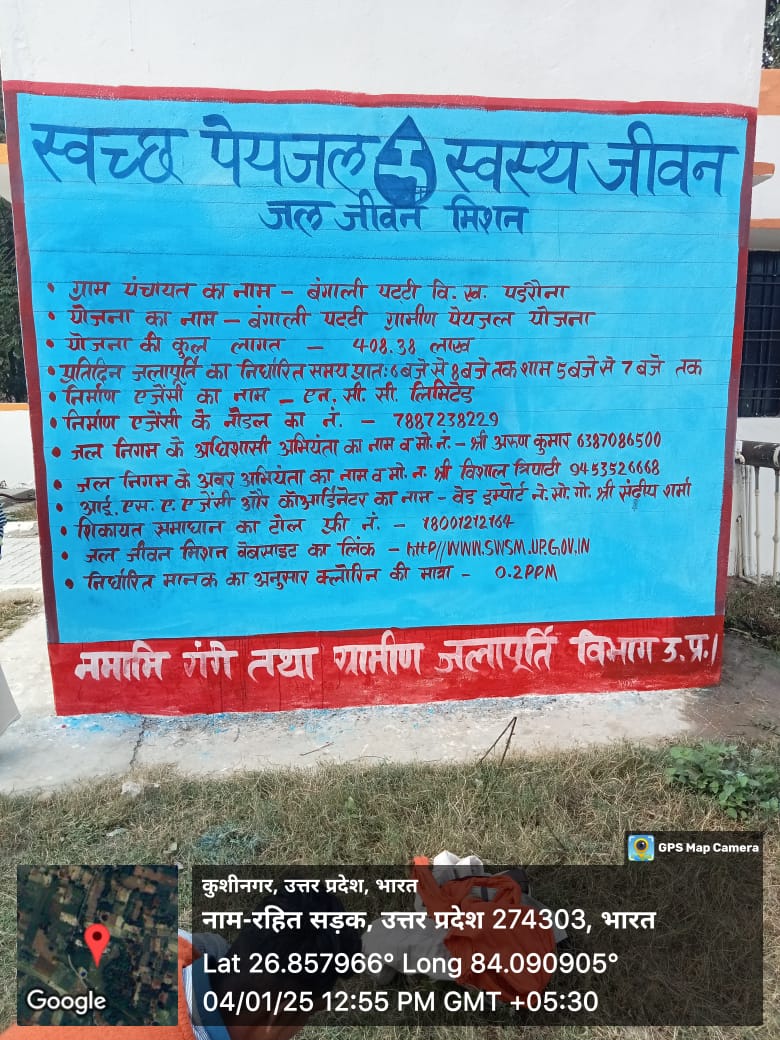 स्वच्छ पेयजल स्वस्थ जीवन
जल जीवन मिशन
• ग्राम पंचायत का नाम – बंगाली पट्टी वि. ख. पडरौना
• योजना का नाम – बंगाली पट्टी ग्रामीण पेयजल योजना
• योजना की कुल लागत – 408.38 लाख
• प्रतिदिन जलापूर्ति का निर्धारित समय प्रातः 6 बजे से 8 बजे तक शाम 5 बजे से 7 बजे तक
• निर्माण एजेंसी का नाम – एन. सी. सी. लिमिटेड
• निर्माण एजेंसी के नोडल का नं. – 7887238229
• जल निगम के अधिशासी अभियंता का नाम व मो. नं. – श्री अरुण कुमार 6387086500
• जल निगम के अवर अभियंता का नाम व मो. न. श्री विशाल त्रिपाठी 9453526668
• आई. एस. ए. एजेंसी और कोआर्डिनेटर का नाम – वेड इम्पोर्ट ने. सो. गो. श्री संदीप शर्मा
• शिकायत समाधान का टोल फ्री नं. – 18001212164
• जल जीवन मिशन वेबसाइट का लिंक – http//WWW.SWSM.UP.GOV.IN
• निर्धारित मानक का अनुसार क्लोरिन की मात्रा – 0.2PPM
नमामि गंगे तथा ग्रामीण जलापूर्ति विभाग उ.प्र.।
GPS Map Camera
कुशीनगर, उत्तर प्रदेश, भारत
नाम-रहित सड़क, उत्तर प्रदेश 274303, भारत
Lat 26.857966° Long 84.090905°
04/01/25 12:55 PM GMT +05:30
Google